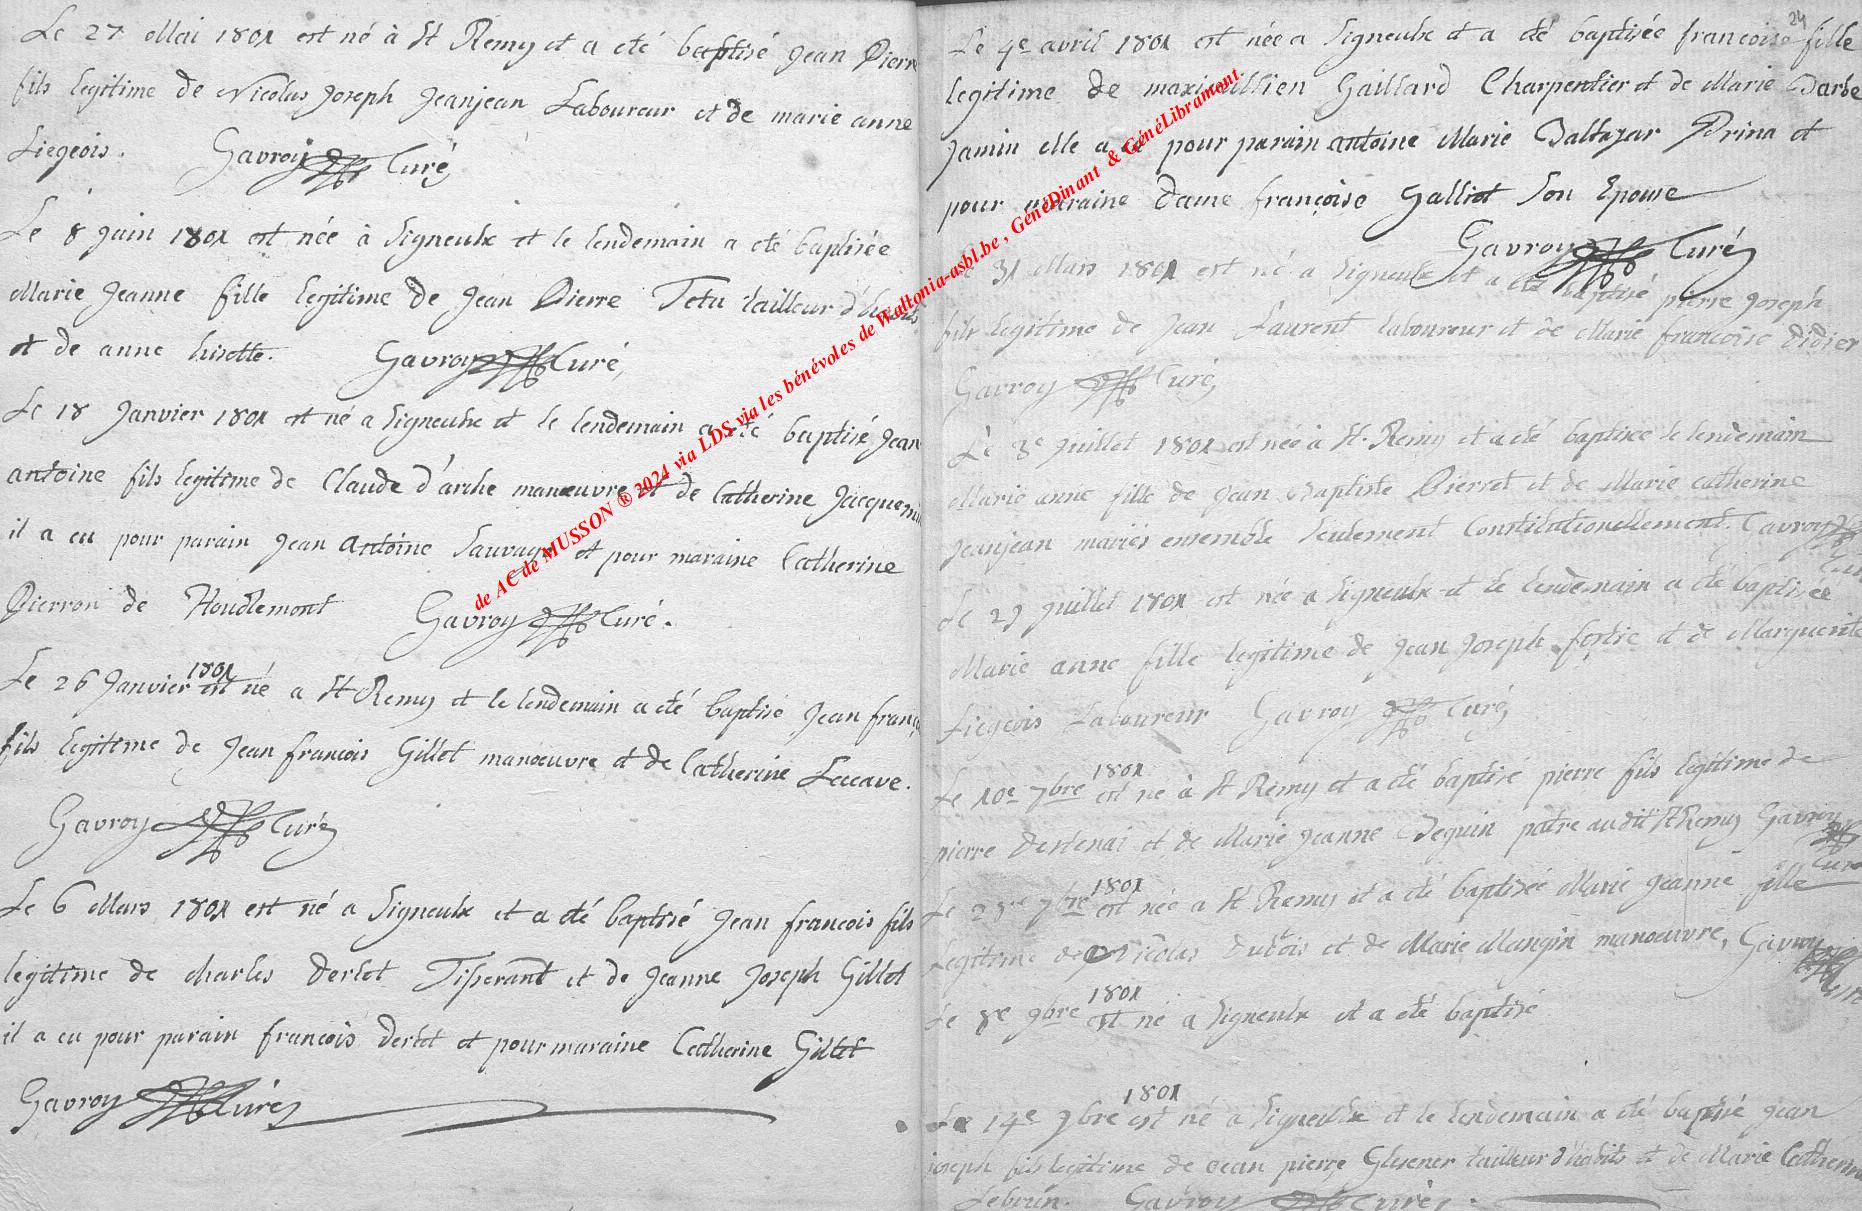 Le 27 Mai 1801 est né à St Remy et a eté baptisé jean Pierre
fils legitime de Nicolas joseph jeanjean Laboureur et de marie anne
Liegeois. Gavroy Curé
Le 8 juin 1801 est née à Signeulx et le lendemain a eté baptisée
Marie jeanne fille legitime de jean Pierre Tetu tailleur d'habits
et de anne husette. Gavroy Curé,
Le 18 janvier 1801 est né a Signeulx et le lendemain a eté baptisé jean
antoine fils legitime de Claude d'arche manœuvre et de Catherine jacquemin
il a eu pour parain jean antoine Sauvage et pour maraine Catherine
Pierron de Houdlemont Gavroy Curé.
Le 26 janvier 1801 est né a St Remy et le lendemain a eté baptisé jean franç
fils legitime de jean francois Gillet manoeuvre et de Catherine Lecave.
Gavroy Curé
Le 6 Mars 1801 est né a Signeulx et a eté baptisé jean francois fils
legitime de charles dertet Tisserant et de jeanne joseph Gillet
il a eu pour parain francois dertet et pour maraine Catherine Gillet
Gavroy Curé
24
Le 4e avril 1801 est née a Signeulx et a eté baptisée francoise fille
legitime de maximillien Gaillard Charpentier et de Marie Barbe
jamin elle a eu pour parain antoine Marie Baltazar Prina et
pour maraine dame françoise Galliot Son Epouse
Gavroy Curé
Le 31 Mars 1801 est né a Signeulx et a eté baptisé pierre joseph
fils legitime de jean Laurent laboureur et de Marie francoise didier
Gavroy Curé,
Le 3e juillet 1801 est née à St. Remy et a eté baptisée le lendemain
Marie anne fille de jean Baptiste Pierret et de Marie catherine
jeanjean mariés ensemble Seulement Constitutionellement. Gavroy
Curé
Le 29 juillet 1801 est née a Signeulx et le lendemain a eté baptisée
Marie anne fille legitime de jean joseph et de Marguerite
Liegeois Laboureur Gavroy Curé
Le 10e 7bre 1801 est né à St Remy et a eté baptisé pierre fils legitime de
pierre et de Marie jeanne Sequin patre audit St Remy Gavroy
Curé
Le 7bre 1801 est née a St Remy et a eté baptisée Marie jeanne fille
Legitime de Nicolas dubois et de Marie Mangin manoeuvre, Gavroy
Curé
Le 8e 9bre 1801 est né à Signeulx et a eté baptisé
Le 14e 9bre 1801 est né a Signeulx et le lendemain a eté baptisé jean
joseph fils legitime de jean pierre Glesener tailleur d'habits et de Marie Catherine
Lebrun. Gavroy Curé.
de AC de MUSSON ® 2024 via LDS via les bénévoles de Wallonia-asbl.be , GénéDinant & GénéLibramont.